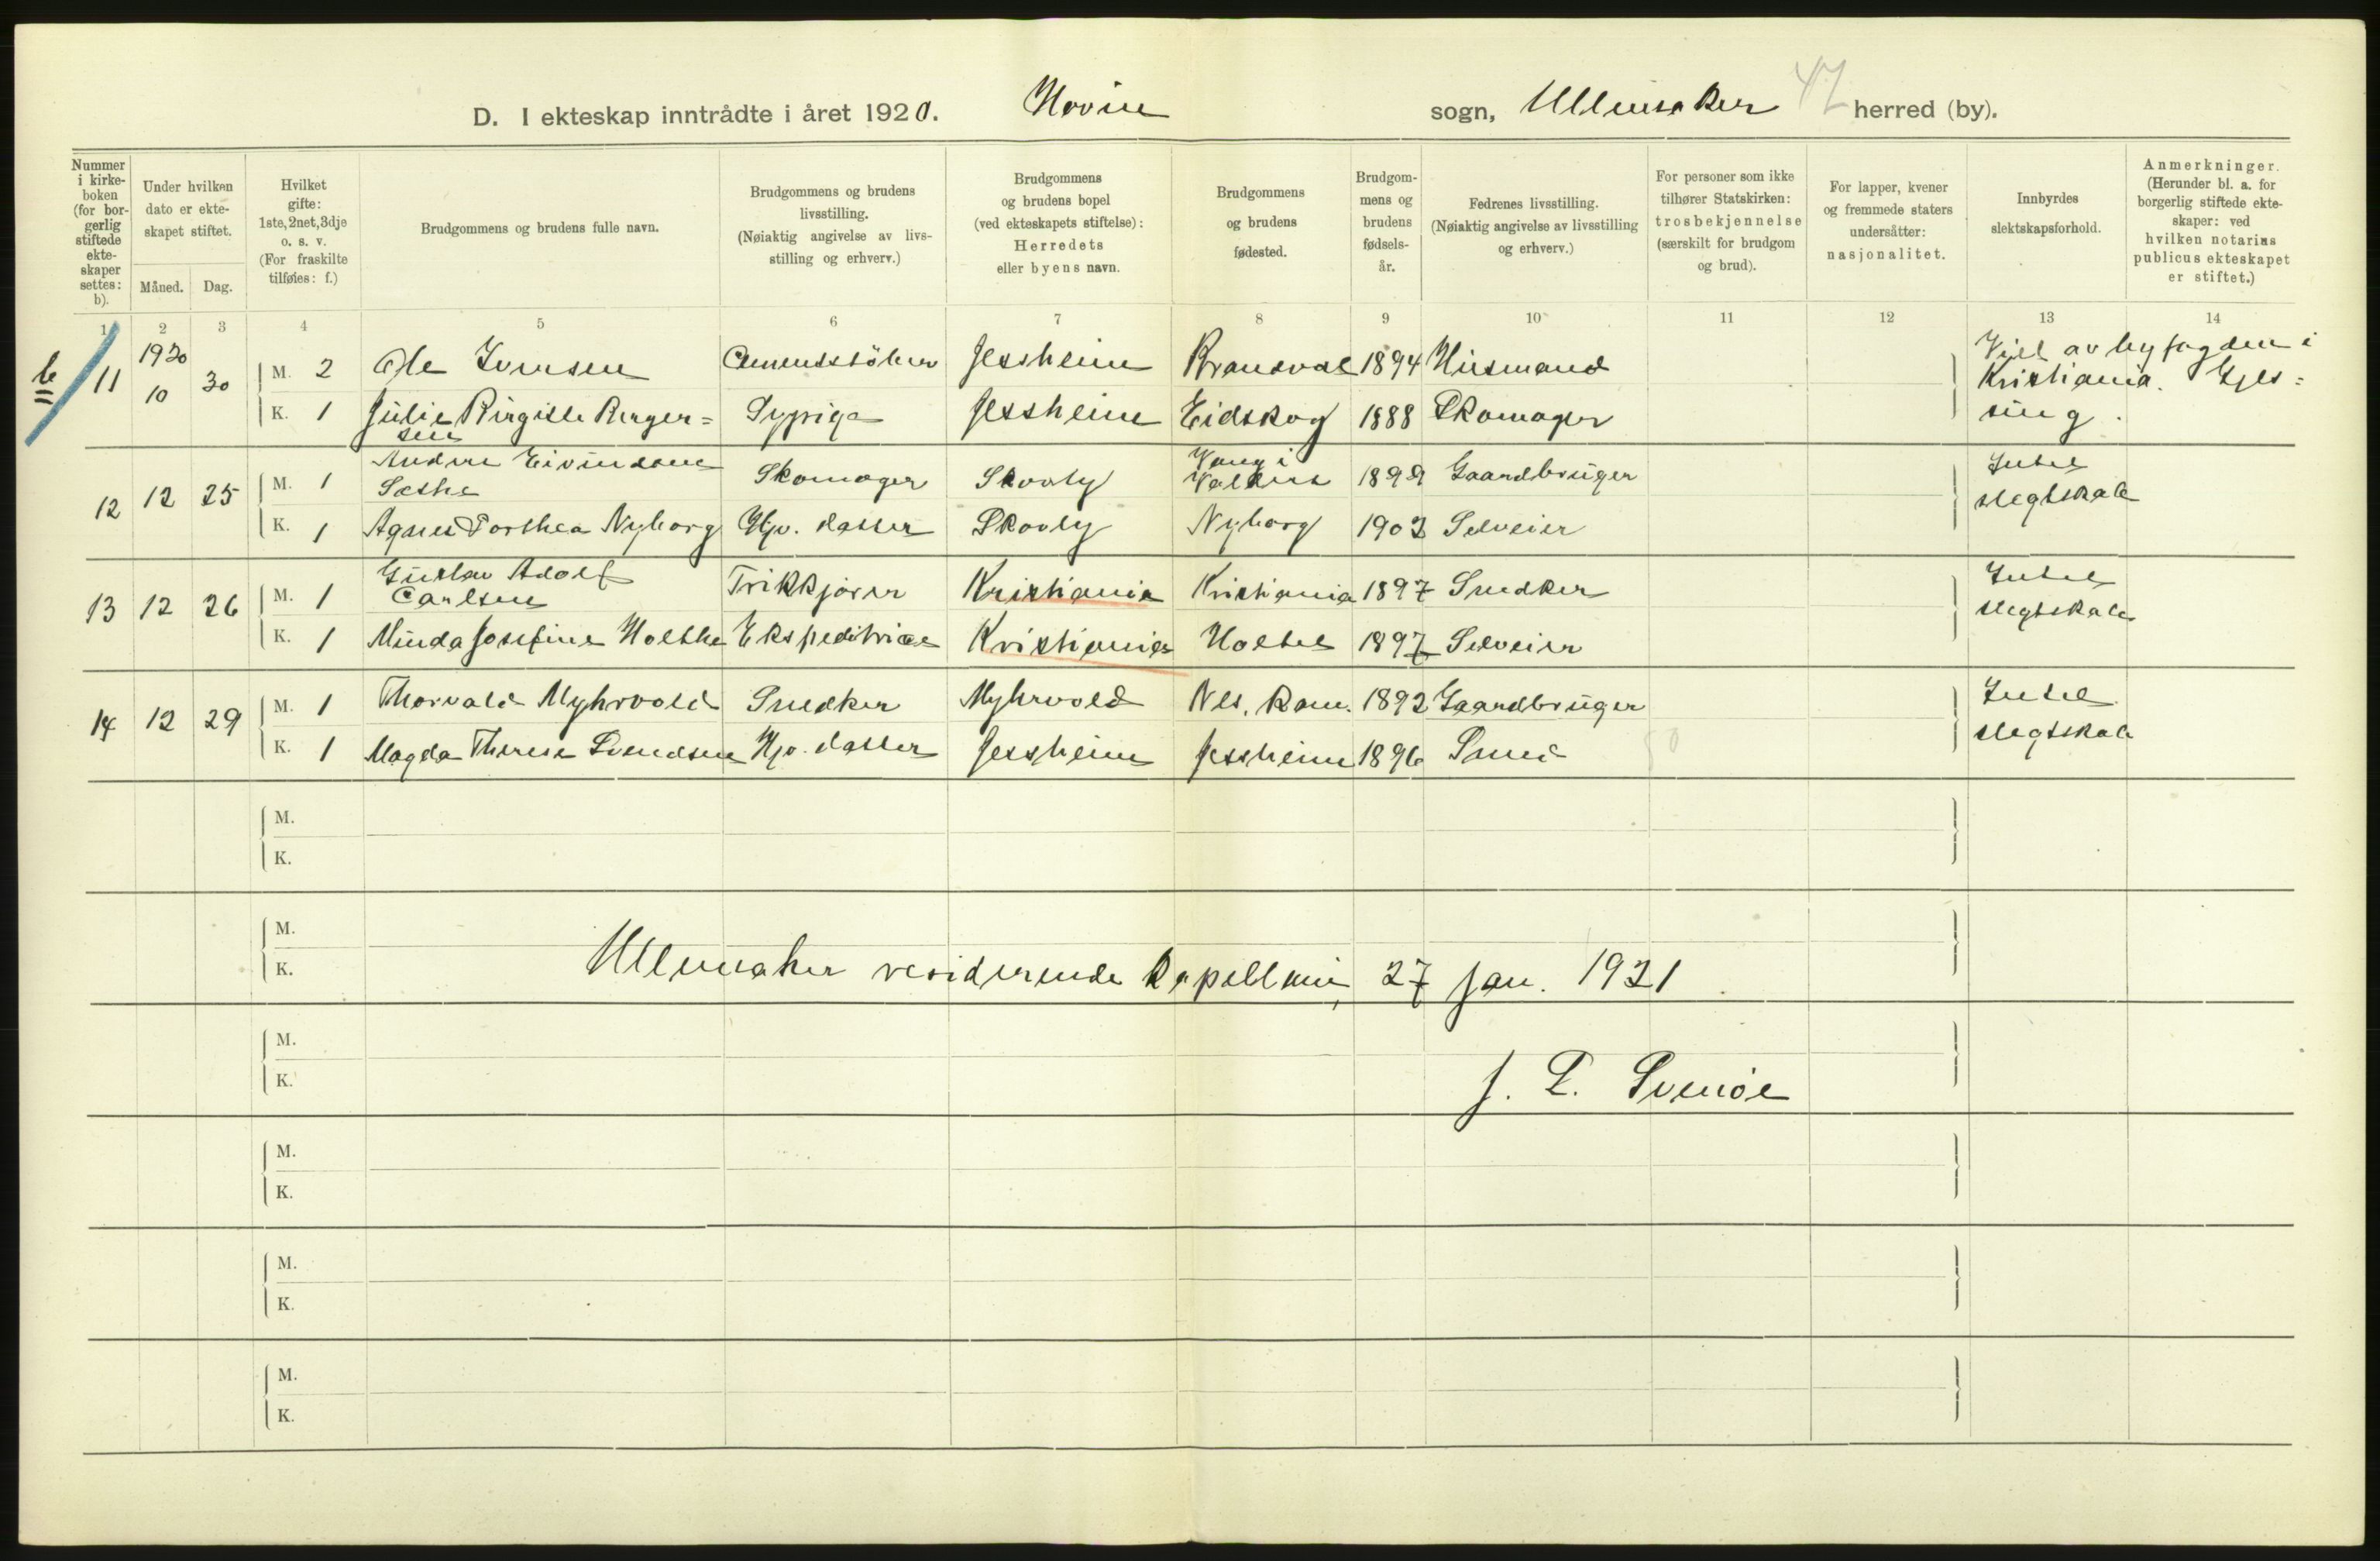 D. I ekteskap inntrådte i året 1920. Hovin sogn, Ullensaker 47 herred (by).
Nummer i kirkeboken (for borgerlig stiftede ekteskaper settes: b).
Under hvilken dato er ekteskapet stiftet.
Måned. Dag.
Hvilket gifte: 1ste, 2net, 3dje o. s. v. (For fraskilte tilføies: f.)
Brudgommens og brudens fulle navn.
Brudgommens og brudens livsstilling. (Nøiaktig angivelse av livsstilling og erhverv.)
Brudgommens og brudens bopel (ved ekteskapets stiftelse): Herredets eller byens navn.
Brudgommens og brudens fødested.
Brudgommens og brudens fødselsår.
Fedrenes livsstilling. (Nøiaktig angivelse av livsstilling og erhverv.)
For personer som ikke tilhører Statskirken: trosbekjennelse (særskilt for brudgom og brud).
For lapper, kvener og fremmede staters undersåtter: nasjonalitet.
Innbyrdes slektskapsforhold.
Anmerkninger. (Herunder bl. a. for borgerlig stiftede ekteskaper: ved hvilken notarius publicus ekteskapet er stiftet.)
1 2 3 4 5 6 7 8 9 10 11 12 13 14
b 11 1920 10 30 M. 2 Ole Iversen Cementstöber Jessheim Brandval 1894 Husmand
K. 1 Julie Birgitte Berger=sen Sypige Jessheim Eidskog 1888 Skomager
Viet av byfogden i
Kristiania. Gjes=
sing.
12 12 25 M. 1 Anders Eivindson Sæthe Skomager Skovly Vang i Valdres 1899 Gaardbruger
K. 1 Agnes Dorthea Nyborg Hjv. datter Skovly Nyborg 1903 Selveier
Intet
slegtskab
13 12 26 M. 1 Gustav Adolf Carlsen Trikkjører Kristiania Kristiania 1897 Snedker
K. 1 Minda Josefine Holthe Ekspeditrice Kristiania Holter 1897 Selveier
Intet
slegtskab
14 12 29 M. 1 Thorvald Myhrvold Snedker Myhrvold Nes, Rom. 1892 Gaardbruger
K. 1 Magda Therese Svendsen Hjv. datter Jessheim Jessheim 1896 Smed
Intet
slegtskab
M.
K.
M.
K.
Ullensaker residerende kapellani, 27 jan. 1921
M.
K.
J. L. Svenöe
M.
K.
M.
K.
M.
K.